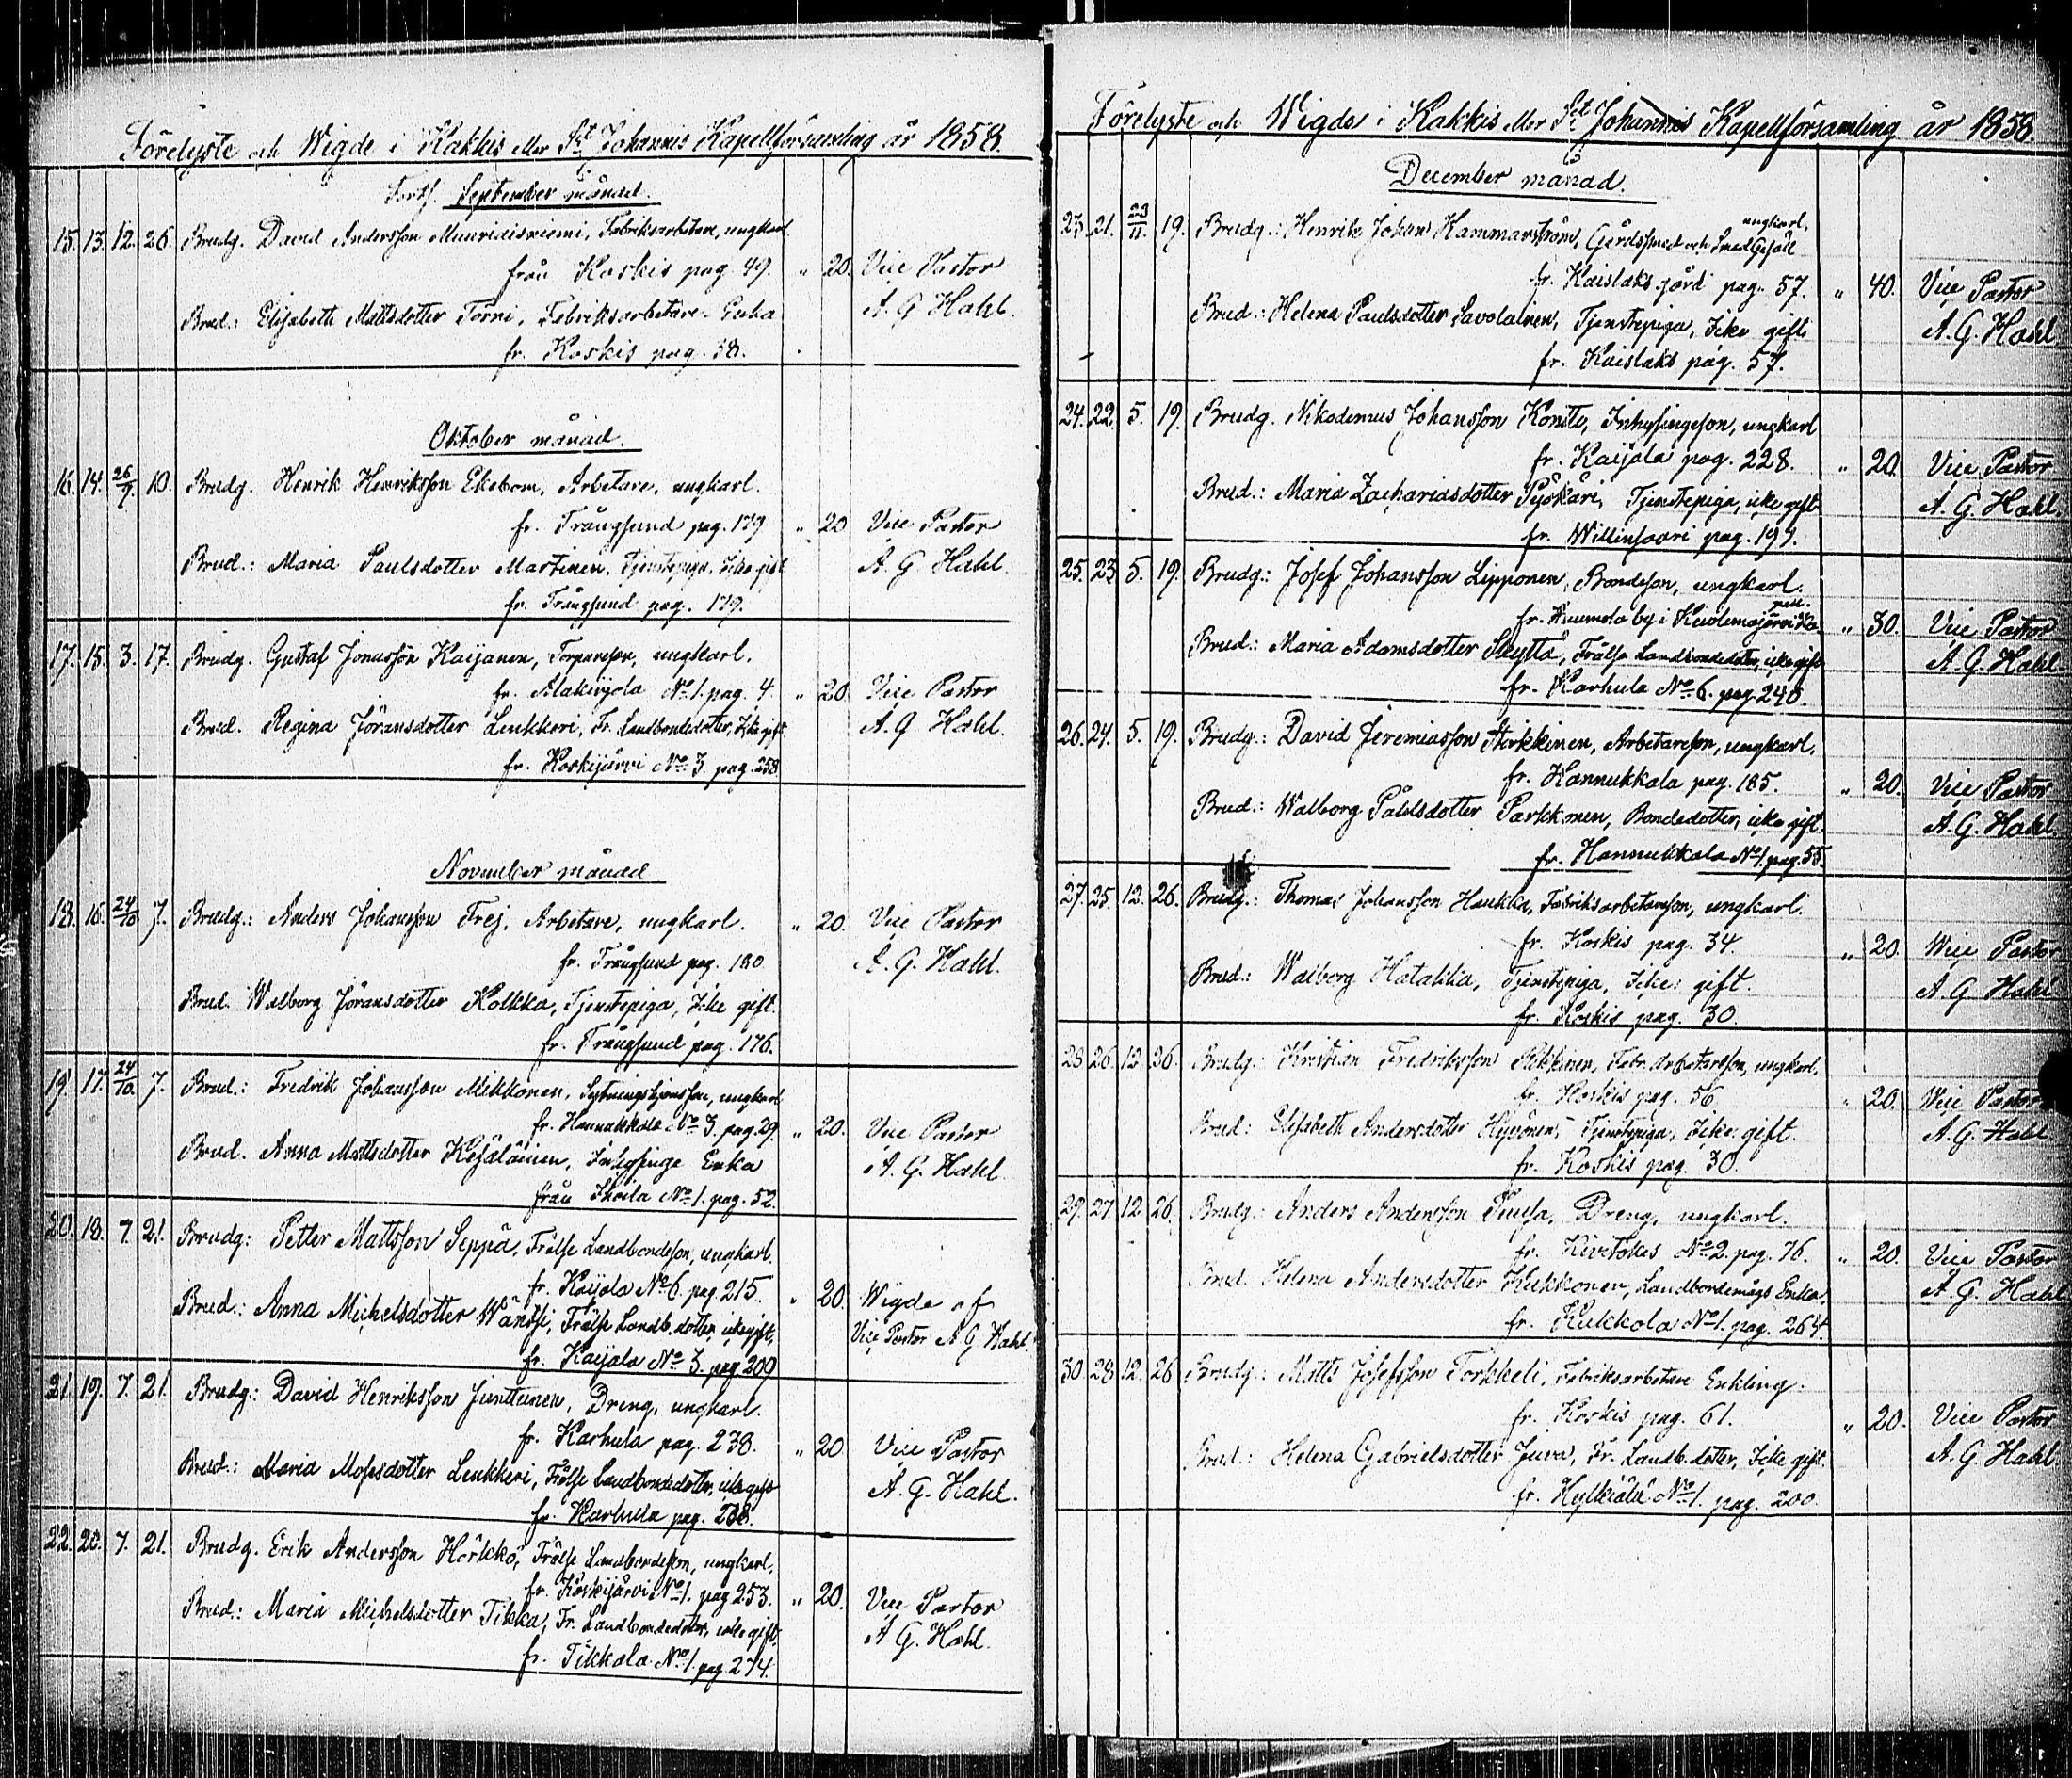 Förelyste och Wigde i Kakkis eller S:t Johannis Kapellförsamling år 1858.
Forts. September månad.
15. 13. 12. 26. Brudg. David Andersson Muuriaisniemi, Fabriksarbetare, ungkarl
från Koskis pag. 49. " 20. Vice Pastor
Brud.: Elisabeth Mattsdotter Törni, Fabriksarbetare-Enka A. G. Hahl.
fr. Koskis pag. 38.
Oktober månad.
16. 14. 26/9. 10. Brudg. Henrik Henriksson Ekebom, Arbetare, ungkarl.
fr. Trångsund pag. 179 " 20 Vice Pastor
Brud.: Maria Paulsdotter Martinen, Tjenstepiga, Icke gift A. G. Hahl.
fr. Trångsund pag. 179.
17. 15. 3. 17. Brudg. Gustaf Jonasson Kaijanen, Torpareson, ungkarl.
fr. Alakirjola No 1. pag. 4. " 20. Vice Pastor
Brud. Regina Jöransdotter Leukkeri, Fr. Landbondedotter, Icke gift A. G. Hahl.
fr. Koskijärvi No 3. pag. 258
November månad
18. 16. 24/10 7. Brudg.: Anders Johansson Frej, Arbetare, ungkarl. " 20. Vice Pastor
fr. Trångsund pag. 180 A. G. Hahl.
Brud. Walborg Jöransdotter Kolkka, Tjenstepiga, Icke gift.
fr. Trångsund pag. 176.
19. 17. 24/10. 7. Brud.: Fredrik Johansson Mikkonen, Sytningshjonsson, ungkarl
fr. Hannukkala No 3. pag. 29. " 20. Vice Pastor
Brud. Anna Mattsdotter Kesäläinen, Inhysinge Enka A. G. Hahl
från No 1. pag. 52.
20. 18. 7. 21. Brudg: Petter Mattsson Seppä, Frälse Landbondeson, ungkarl.
fr. Kaijola No 6. pag. 215. " 20. Wigde af
Brud.: Anna Michelsdotter Wäntsi, Frälse Landb.dotter, icke gift, Vice Pastor A G Hahl
fr. Kaijala No 3. pag. 209
21. 19. 7. 21. Brudg: David Henriksson Junttunen, Dreng, ungkarl.
fr. Karhula pag. 238. " 20. Vice Pastor
Brud.: Maria Mosesdotter Leukkeri, Frälse Landbondedotter, icke gift A. G. Hahl.
fr. Karhula pag. 238.
22. 20. 7. 21. Brudg. Erik Andersson Härkkö, Frälse Landbondeson, ungkarl,
fr. Koskijärvi No 1. pag 253. " 20. Vice Pastor
Brud.: Maria Michelsdotter Tikka, Fr. Landbondedotter, icke gift, A. G. Hahl.
fr. Tikkala No 1. pag. 274.
Förelyste och Wigde i Kakkis eller S:t Johannis Kapellförsamling år 1858.
December månad.
ungkarl,
23. 21. 23/11. 19. Brudg.: Henrik Johan Hammarström, Gårdssmed och Smed Gesäll
fr. Kaislaks gård pag. 57. " 40. Vice Pastor
Brud.: Helena Paulsdotter Savolainen, Tjenstepiga, Icke gift A. G. Hahl
fr. Kaislaks pag. 57.
24. 22. 5. 19. Brudg. Nikodemus Johansson Kontto, Inhysingeson, ungkarl
fr. Kaijala pag. 228. " 20. Vice Pastor
Brud.: Maria Zachariasdotter Pyökäri, Tjenstepiga, icke gift A. G. Hahl.
fr. Willinsaari pag. 199.
25. 23. 5. 19. Brudg.: Josef Johansson Lipponen, Bondeson, ungkarl.
pell.
fr. by i Kuolemajärvi Ka- " 30. Vice Pastor
Brud.: Maria Adamsdotter Skyttä, Frälse Landbondedotter, icke gift A. G. Hahl
fr. Karhula No 6. pag. 240.
26. 24. 5. 19. Brudg.: David Jeremiasson Hirkkinen, Arbetareson, ungkarl.
fr. Hannukkala pag. 185. " 20. Vice Pastor
Brud.: Walborg Påhlsdotter Parkkonen, Bondedotter, icke gift A. G. Hahl.
fr. Hannukkala No 1. pag. 55.
27. 25. 12. 26. Brudg.: Thomas Johansson Haukka, Fabriksarbetareson, ungkarl.
fr. Koskis pag. 34. " 20. Vice Pastor
Brud.: Walborg Hatakka, Tjenstepiga, Icke gift. A. G. Hahl
fr. Koskis pag. 30.
28. 26. 12. 26. Brudg: Kristian Fredriksson Pakkanen, Fabr. Arbetareson, ungkarl.
fr. Koskis pag. 56. " 20. Vice Pastor
Brud: Elisabeth Andersdotter Hyvönen, Tjenstepiga, Icke gift. A. G. Hahl
fr. Koskis pag. 30.
29. 27. 12. 26. Brudg: Anders Andersson Tuusa, Dreng, ungkarl.
fr. Kirstokes No 2. pag. 76. " 20. Vice Pastor
Brud. Helena Andersdotter Kukkonen, Landbondemågs Enka, A. G. Hahl
fr. Kukkola No 1. pag. 264.
30. 28. 12. 26. Brudg: Matts Josefsson Torkkeli, Fabriksarbetare Enkling.
fr. Koskis pag. 61. " 20. Vice Pastor
Brud: Helena Gabrielsdotter Juva, Fr. Landb.dotter, Icke gift. A. G. Hahl
fr. Hylkiälä No 1. pag. 200.